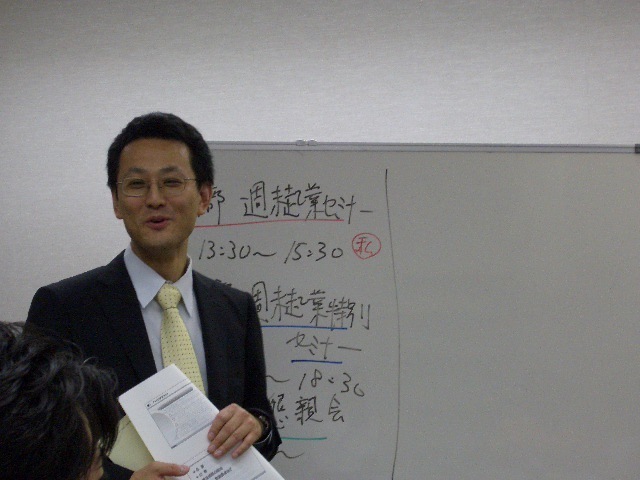 部 週末起業セミナー
13:30〜15:30 私
週末起業特別
セミナー
〜18:30
懇親会
〜